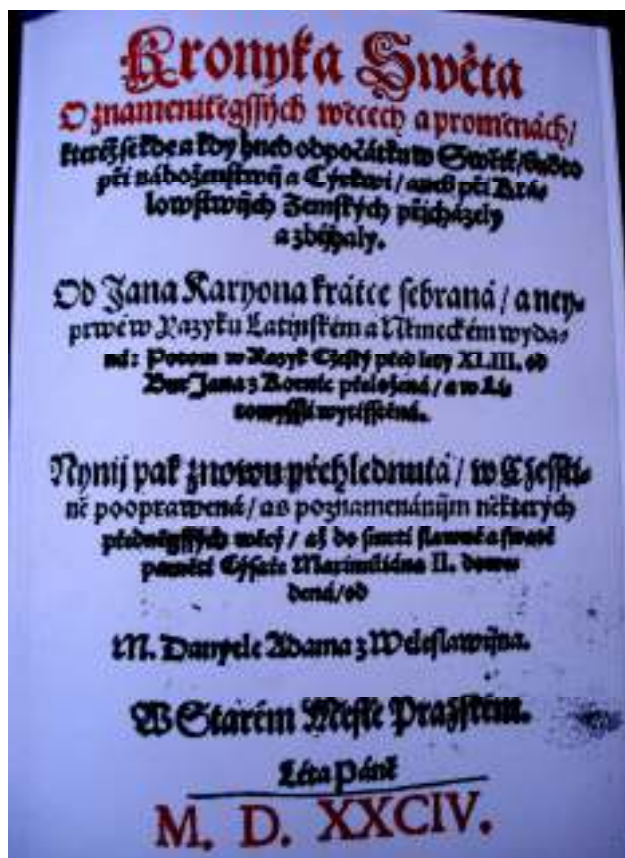 Kronyka Swěta
O znamenitěgssých wěcech a proměnách/
kteréž se kde a kdy hned od počátku w Swětě/
při náboženstwij a Cýrkwi / aneb při Krá-
lowstwijch Zemských přicházely
a zbijhaly.
Od Jana Karyona krátce sebraná / a ney-
prwé w Jazyku Latinském a Německém wyda-
ná: Potom w Jazyk Cžeský před lety XLIII. od
Jana z přeložená / a w Li-
tomyssli wytisstěná.
Nynij pak znowu přehlednutá / w Cžessti-
ně pooprawená / a s poznamenánijm některých
přednějssých wěcý / až do smrti slawné a swaté
paměti Cýsaře Maximiliána II. dowe-
dená / od
M. Danyele Adama z Weleslawijna.
W Starém Městě Pražském.
Léta Páně
M. D. XXCIV.